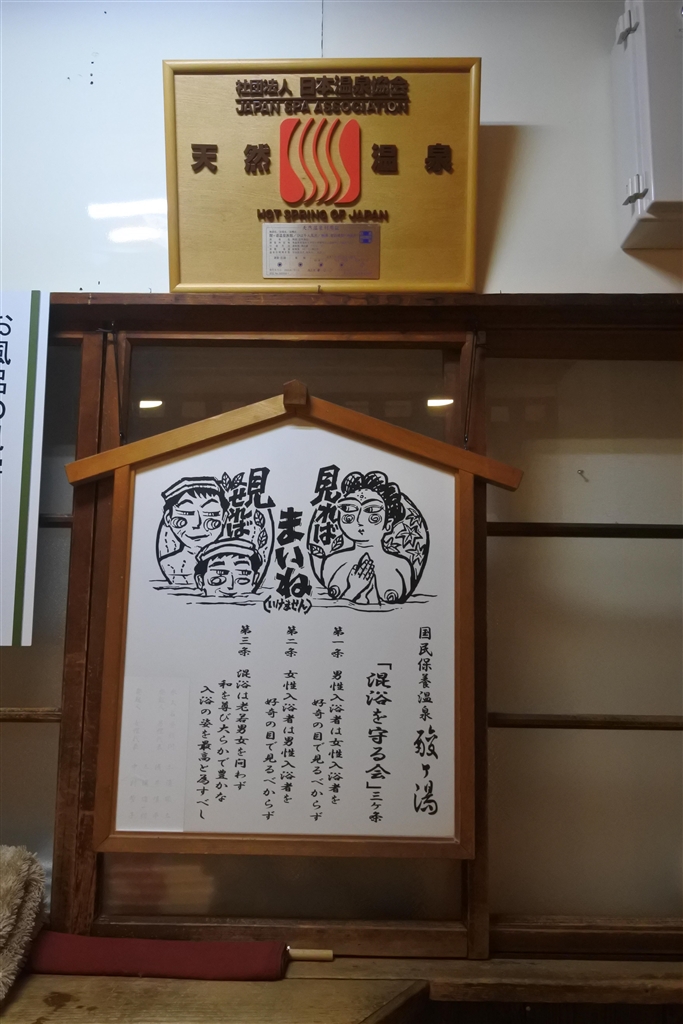 社団法人 日本温泉協会
JAPAN SPA ASSOCIATION
天然温泉
HOT SPRING OF JAPAN
見れば
まいね
(いけません)
見せれば
国民保養温泉 酸ヶ湯
「混浴を守る会」三ヶ条
第一条 男性入浴者は女性入浴者を
好奇の目で見るべからず
第二条 女性入浴者は男性入浴者を
好奇の目で見るべからず
第三条 混浴は老若男女を問わず
和を尊び大らかで豊かな
入浴の姿を最高と為すべし
お風呂の